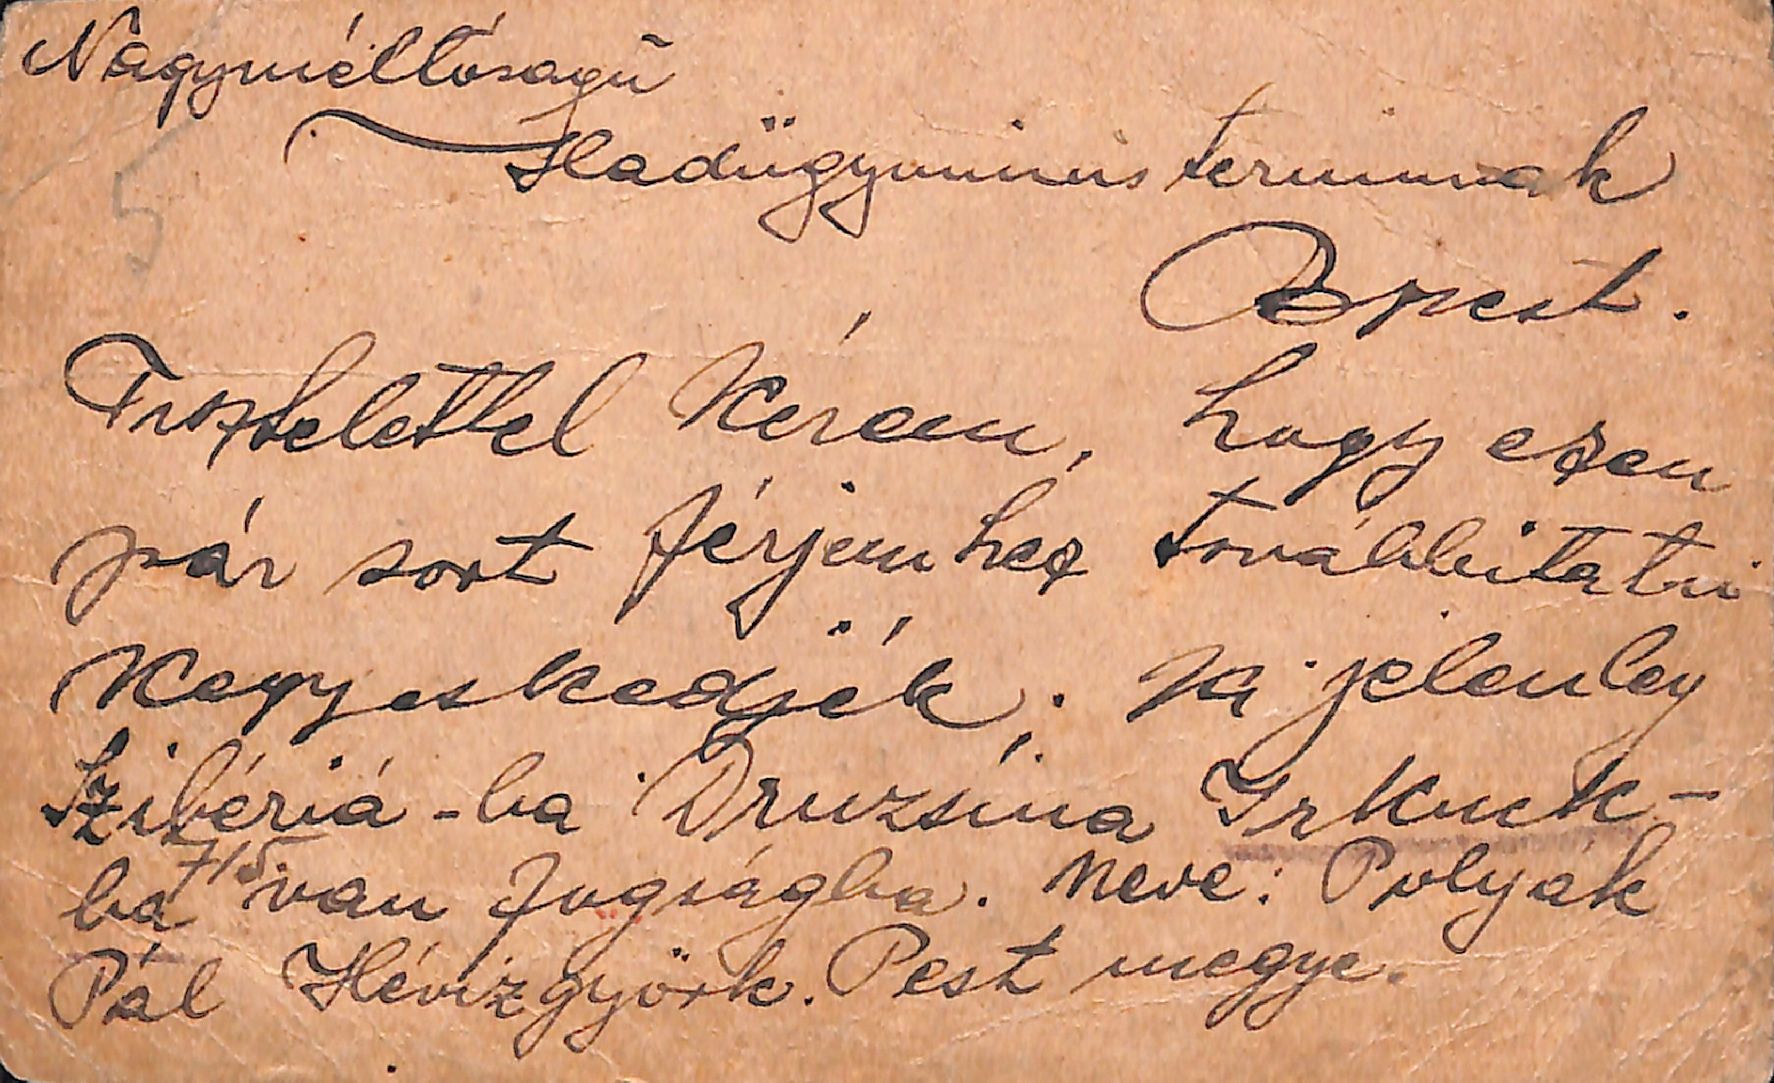 Nagyméltóságú
Hadügyministeriumnak
Bpest.
Tisztelettel kérem, hogy ezen
pár sort férjemhez továbbitatni
kegyeskedjék; ki jelenleg
Szibériá-ba Druzsina Irkuck-
ba 715 van fogságba. Neve: Polyák
Pál Hévizgyörk. Pest megye.
5